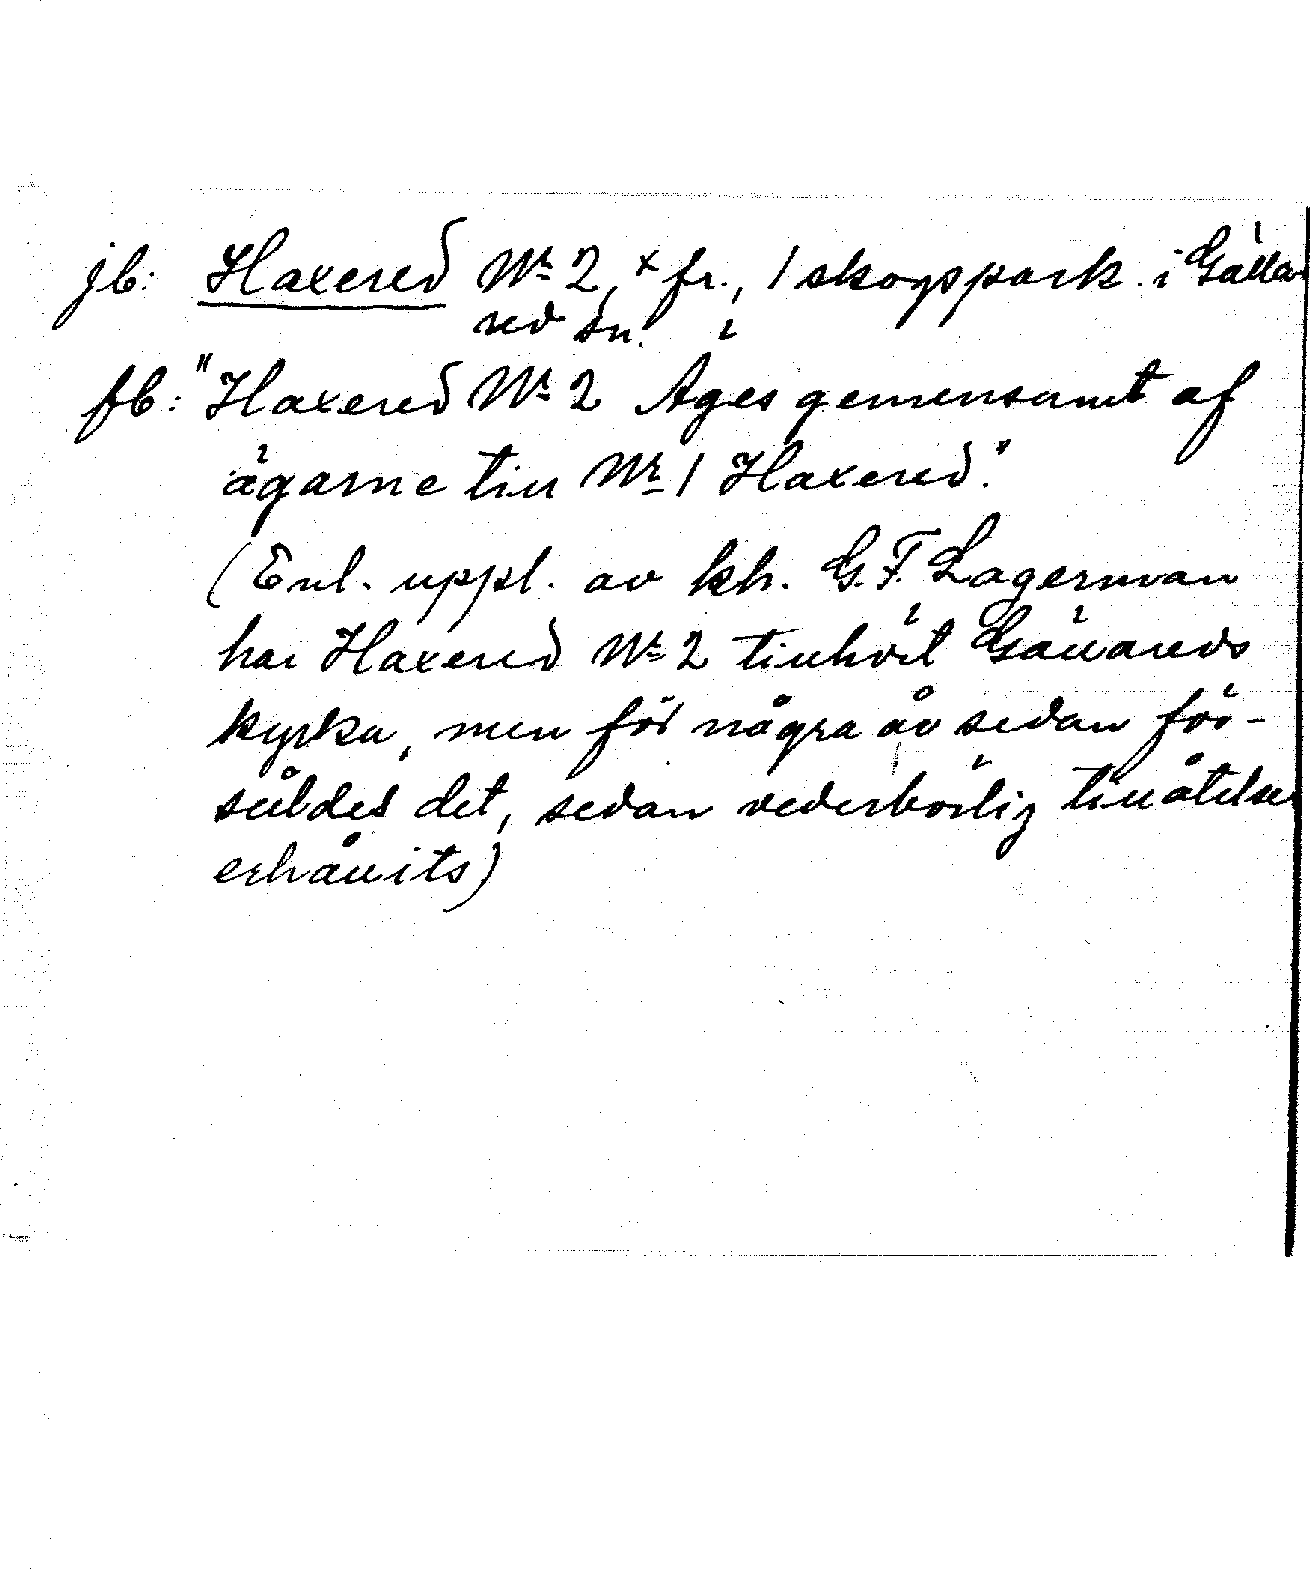 jb: Haxered Nr 2, x fr., 1 skogspark. i Gälla-
red sn.
fb: "Haxered Nr 2 Äges gemensamt af
ägarne till Nr 1 Haxered."
(Enl. uppl. av kh. G. F. Lagerman
har Haxered Nr 2 tillhört Gällareds
kyrka, men för några år sedan för-
såldes det, sedan vederbörlig tillåtelse
erhållits)